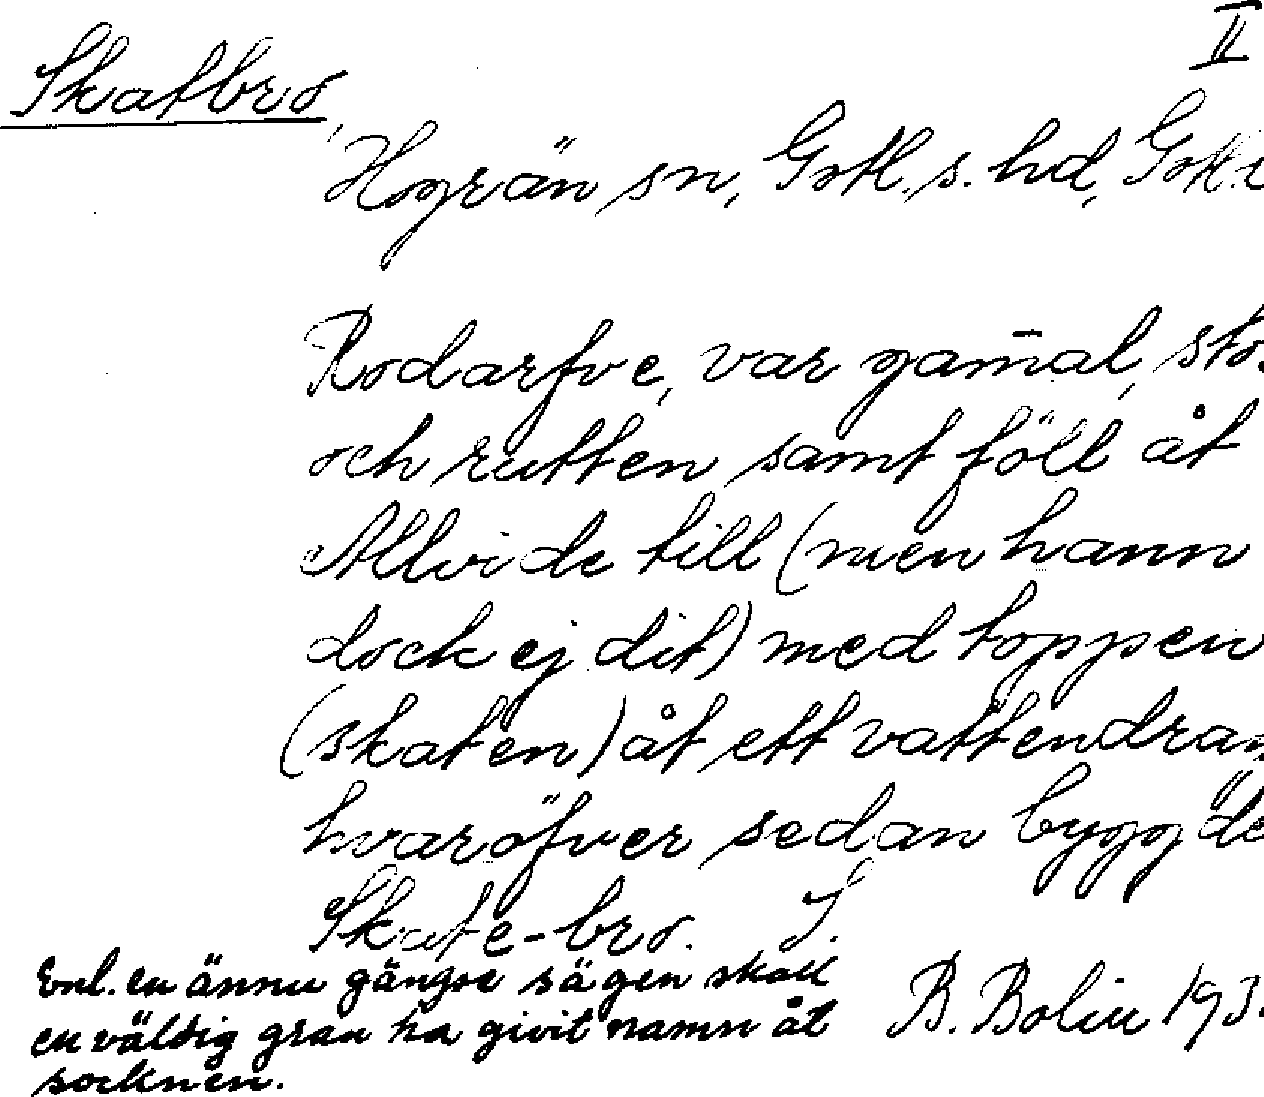 II
Skatbro,
Hogrän sn, Gotl. s. hd, Gotl. l
Rodarfve, var gam̄al, sto
och rutten samt föll åt
Allvide till (men hann
dock ej dit) med toppen
(skaten) åt ett vattendrag
hvaröfver sedan byggde
Skate-bro. S.
Enl. en ännu gängse sägen skall
en väldig gran ha givit namn åt
socknen.
B. Bolin 193